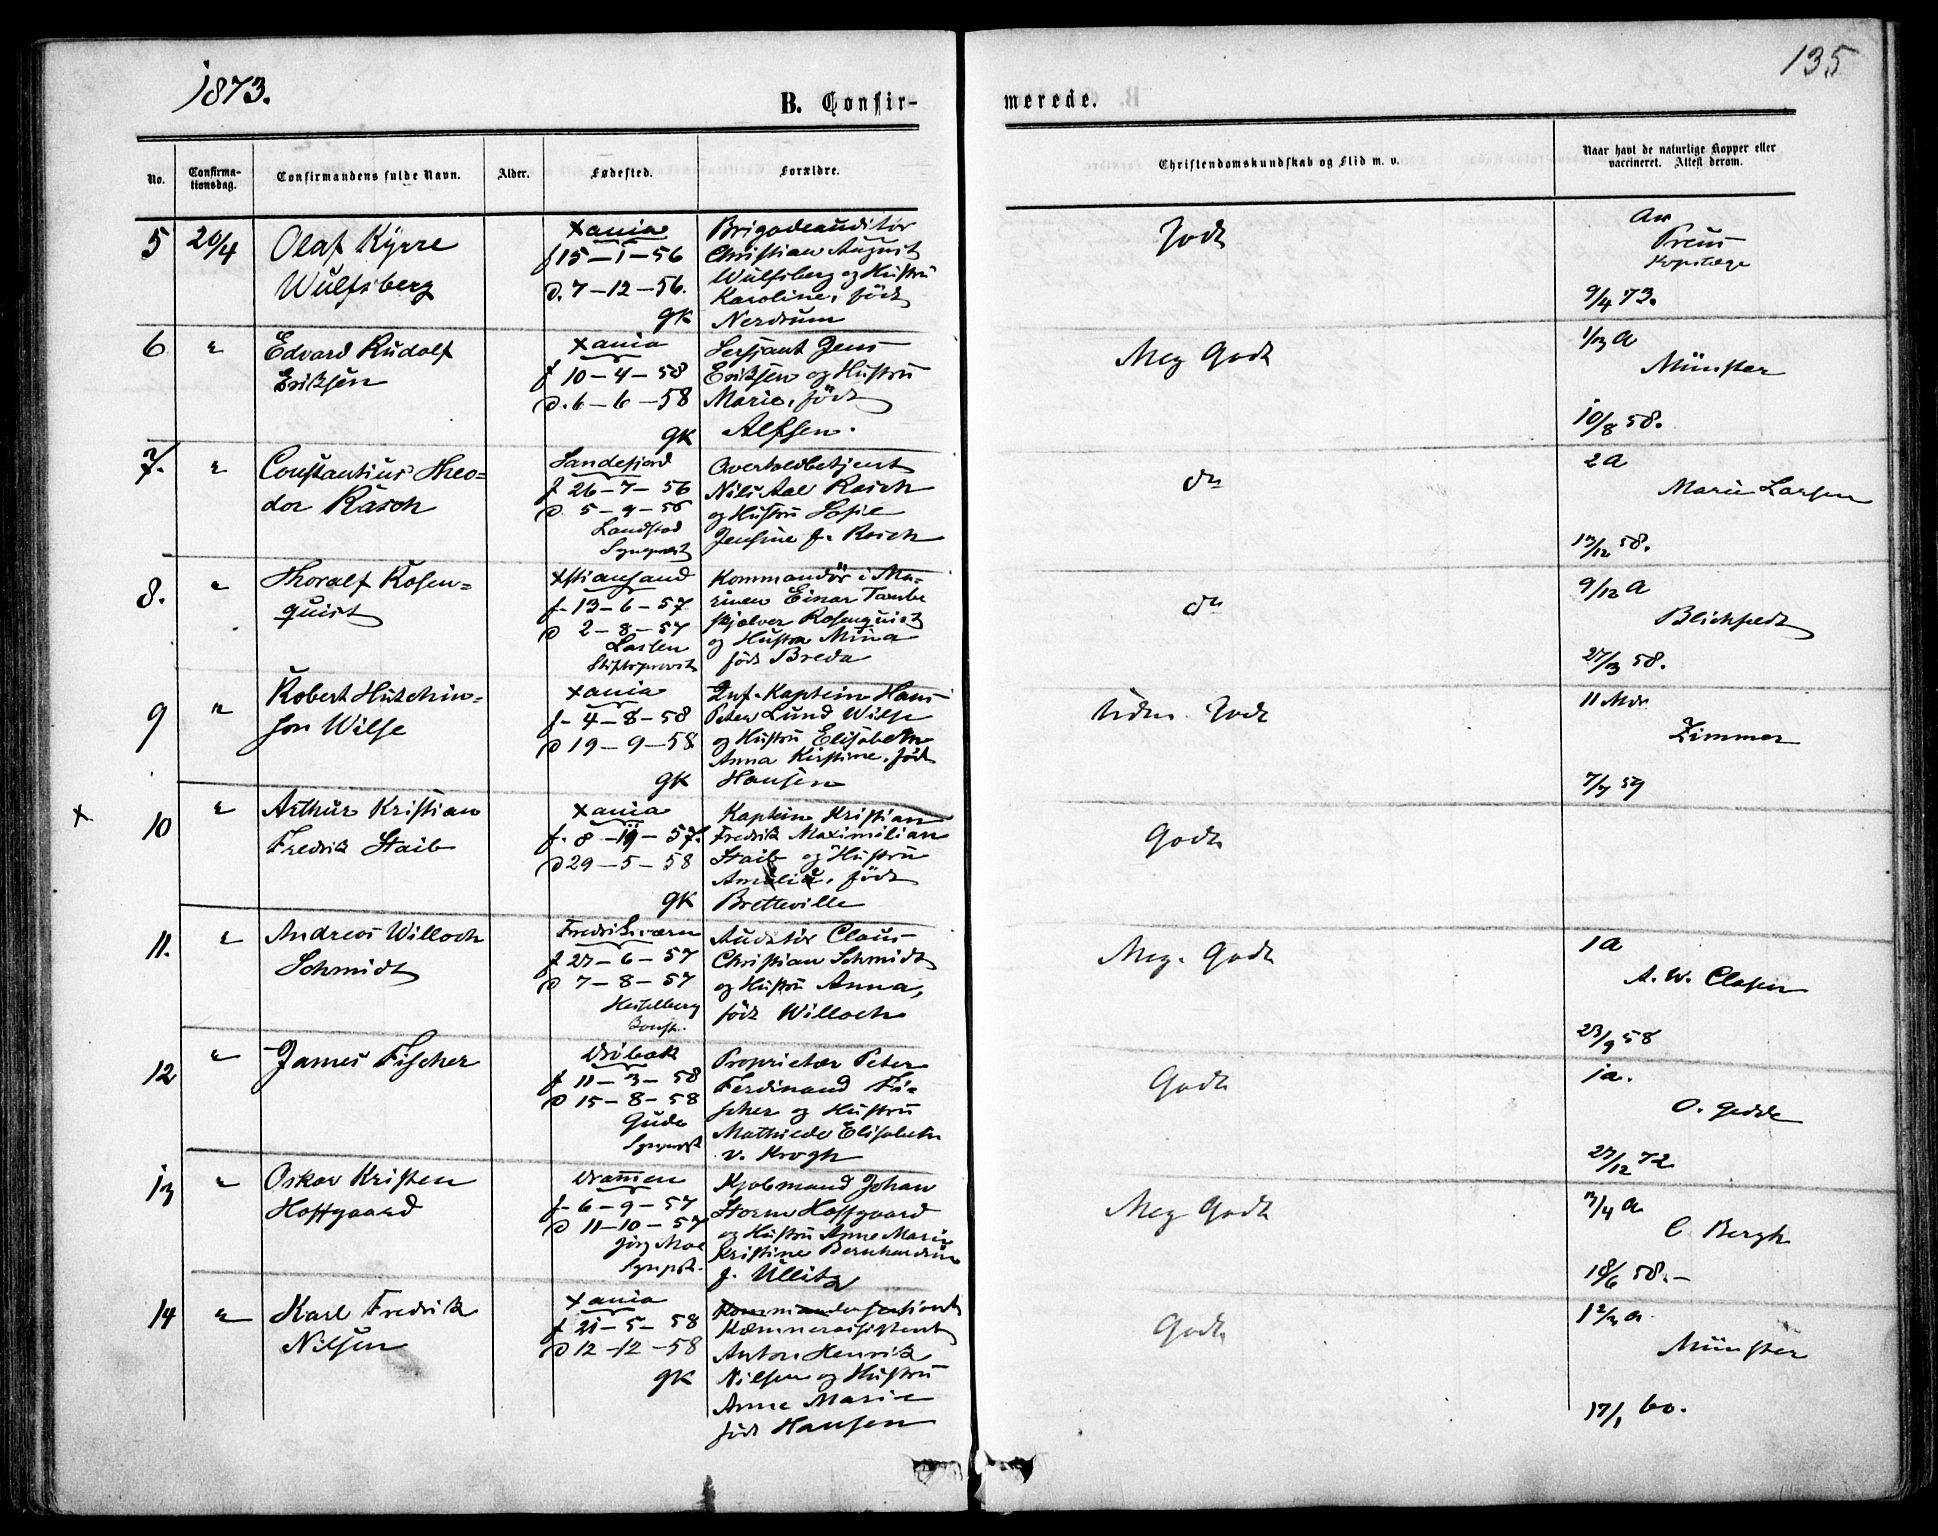 1873.
135
B. Confir-
merede.
No.
Confirma-
tionsdag.
Confirmandens fulde Navn.
Alder.
Fødested.
Forældre.
Christendomskundskab og Flid m. v.
Naar havt de naturlige Kopper eller
vaccineret. Attest derom.
5
20/4
Olaf Kyrre
Wulfsberg
Xania
f 15-1-56
d. 7-12-56.
GK
Brigadeauditør
Christian August
Wulfsberg og Hustru
Karoline, født
Nerdrum
Godt
Preus
9/4 73.
6
"
Edvard Rudolf
Eriksen
Xania
f 10-4-58
d. 6-6-58
GK
Sersjant Jens
Eriksen og Hustru
Marie, født
Alfsen.
Meg Godt
Münster
10/8 58.
7.
"
Constantius Theo=
dor Rasch
Sandefjord
f 26-7-56
d 5-9-56
Landstad
Sognprest
Overtoldbetjent
Nils Aal Rasch
og Hustru Sofie
Jensine f. Rasch
do
2 a
Marie Larsen
13/12 58.
8.
"
Thoralf Rosen=
quist
Xstiansand
f. 13-6-57
d 2-8-57
Lassen
Stiftsprovst
Kommandør i Ma-
rinen Einar Tambe
skjelver Rosenquist
og Hustru Mina
født Breda
do
9/12 a
Blichfeldt
27/3 58.
9
"
Robert Hutchin=
son Wilse
Xania
f- 4-8-58
d 19-9-58
GK
Inf. Kaptein Hans
Peter Lund Wilse
og Hustru Elisabeth
Anna Kirstine, født
Hansen
Godt
11 Mdr
Zimmer
7/7 59
X
10
"
Arthur Kristian
Fredrik Staib
Xania
f. 8-11-57.
d 29-5-58
GK
Kaptein Kristian
Fredrik Maximilian
Staib og Hustru
Amalia, født
Bretteville
Godt
11.
"
Andreas Willoch
Schmidt
Fredriksværn
f 27-6-57
d 7-8-57
Hesselberg
Auditør Claus
Christian Schmidt
og Hustru Anna,
født Willoch
Meg. Godt
1 a
A. W. Clasen
23/9 58
12
"
James Fischer
Drøbak
f 11-3-58
d 15-8-58
Gude
Sognprest
Proprietær Peter
Ferdinand Fi-
scher og Hustru
Mathilde Elisabeth
v. Krogh
Godt
1 a.
O. Gedde
27/12 72
13
"
Oskar Kristen
Hoffgaard
Drammen
f- 6-9-57
d 11-10-57
Jørg Moe
Sgnpst.
Kjøbmand Johan
Storm Hoffgaard
og Hustru Anne Marie
Kristine Bernhardine
f. Ullitz
Meg Godt
3/4 a
C Bergh
18/6 58.-
14
"
Karl Fredrik
Nilsen
Xania
f 21-5-58
d 12-12-58
GK
Kæmnerassistent
Anton Henrik
Nilsen og Hustru
Anne Marie
født Hansen
Godt
Münster
17/1 60.